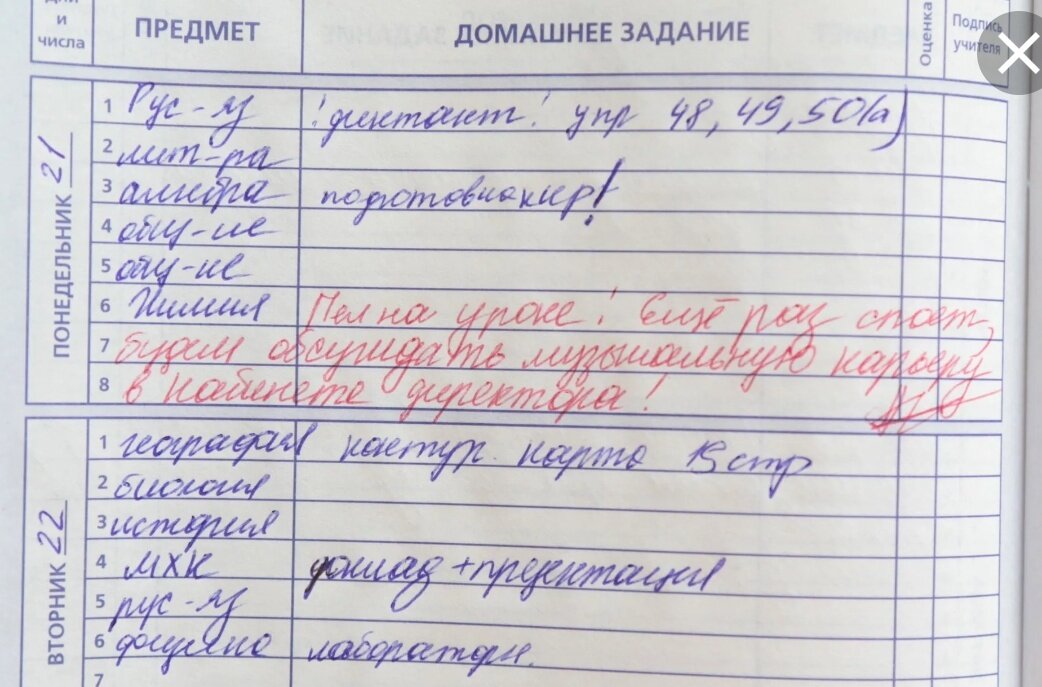 дни
и
числа
ПРЕДМЕТ
ДОМАШНЕЕ ЗАДАНИЕ
Оценка
Подпись
учителя
ПОНЕДЕЛЬНИК 21
1 Рус-яз !диктант! упр 48, 49, 50(а)
2 лит-ра
3 алгебра подготов на к/р!
4 общ-ие
5 общ-ие
6 Химия Пел на уроке! Ещё раз споёт,
7 будем обсуждать музыкальную карьеру
8 в кабинете директора!
ВТОРНИК 22
1 география контур. карта 13 стр
2 биология
3 история
4 МХК доклад + презентация
5 рус-яз
6 физика лаборатори.
7